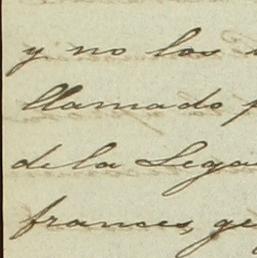 y no los
llamado
de la Lega
frances, ge